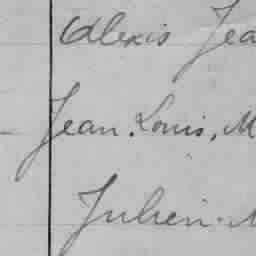 Alexis Jea
Jean. Louis, M
Julien.